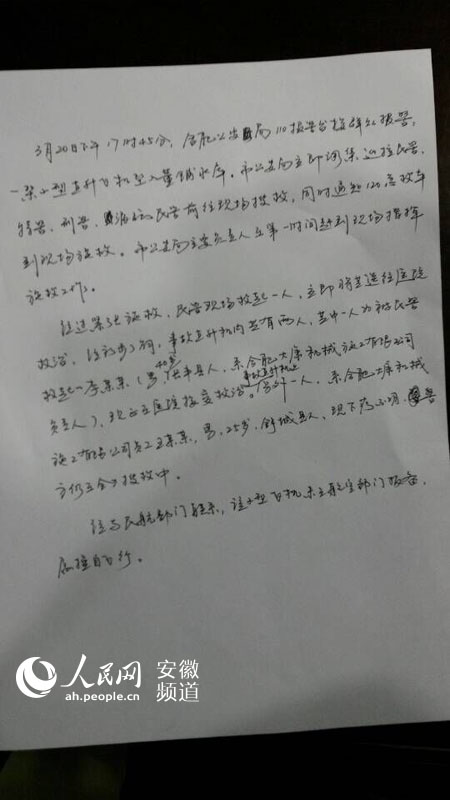 3月20日下午17时45分，合肥公安局110报警台接群众报警，
一架小型直升飞机坠入董铺水库。市公安局立即调集巡控民警、
特警、刑警、消防民警前往现场搜救，同时通知120急救车
到现场施救。市公安局主要负责人在第一时间赶到现场指挥
施救工作。
经过紧张施救，民警现场救起一人，立即将其送往医院
救治。经初步了解，事故直升机内共有两人，其中一人为被民警
救起的李某某（男，40岁，长丰县人，系合肥大库机械施工有限公司
负责人），现正在医院接受救治。事故直升机上另外一人，系合肥大库机械
施工有限公司员工王某某，男，25岁，舒城县人，现下落不明，警
方仍在全力搜救中。
经与民航部门联系，该小型飞机未向航空部门报备，
属擅自飞行。
人民网 安徽
ah.people.cn 频道